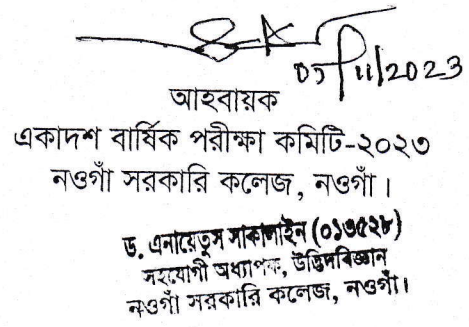 05/11/2023
আহবায়ক
একাদশ বার্ষিক পরীক্ষা কমিটি-২০২৩
নওগাঁ সরকারি কলেজ, নওগাঁ।
ড. এনায়েতুস সাকালাইন (০১৩৫২৮)
সহযোগী অধ্যাপক, উদ্ভিদবিজ্ঞান
নওগাঁ সরকারি কলেজ, নওগাঁ।